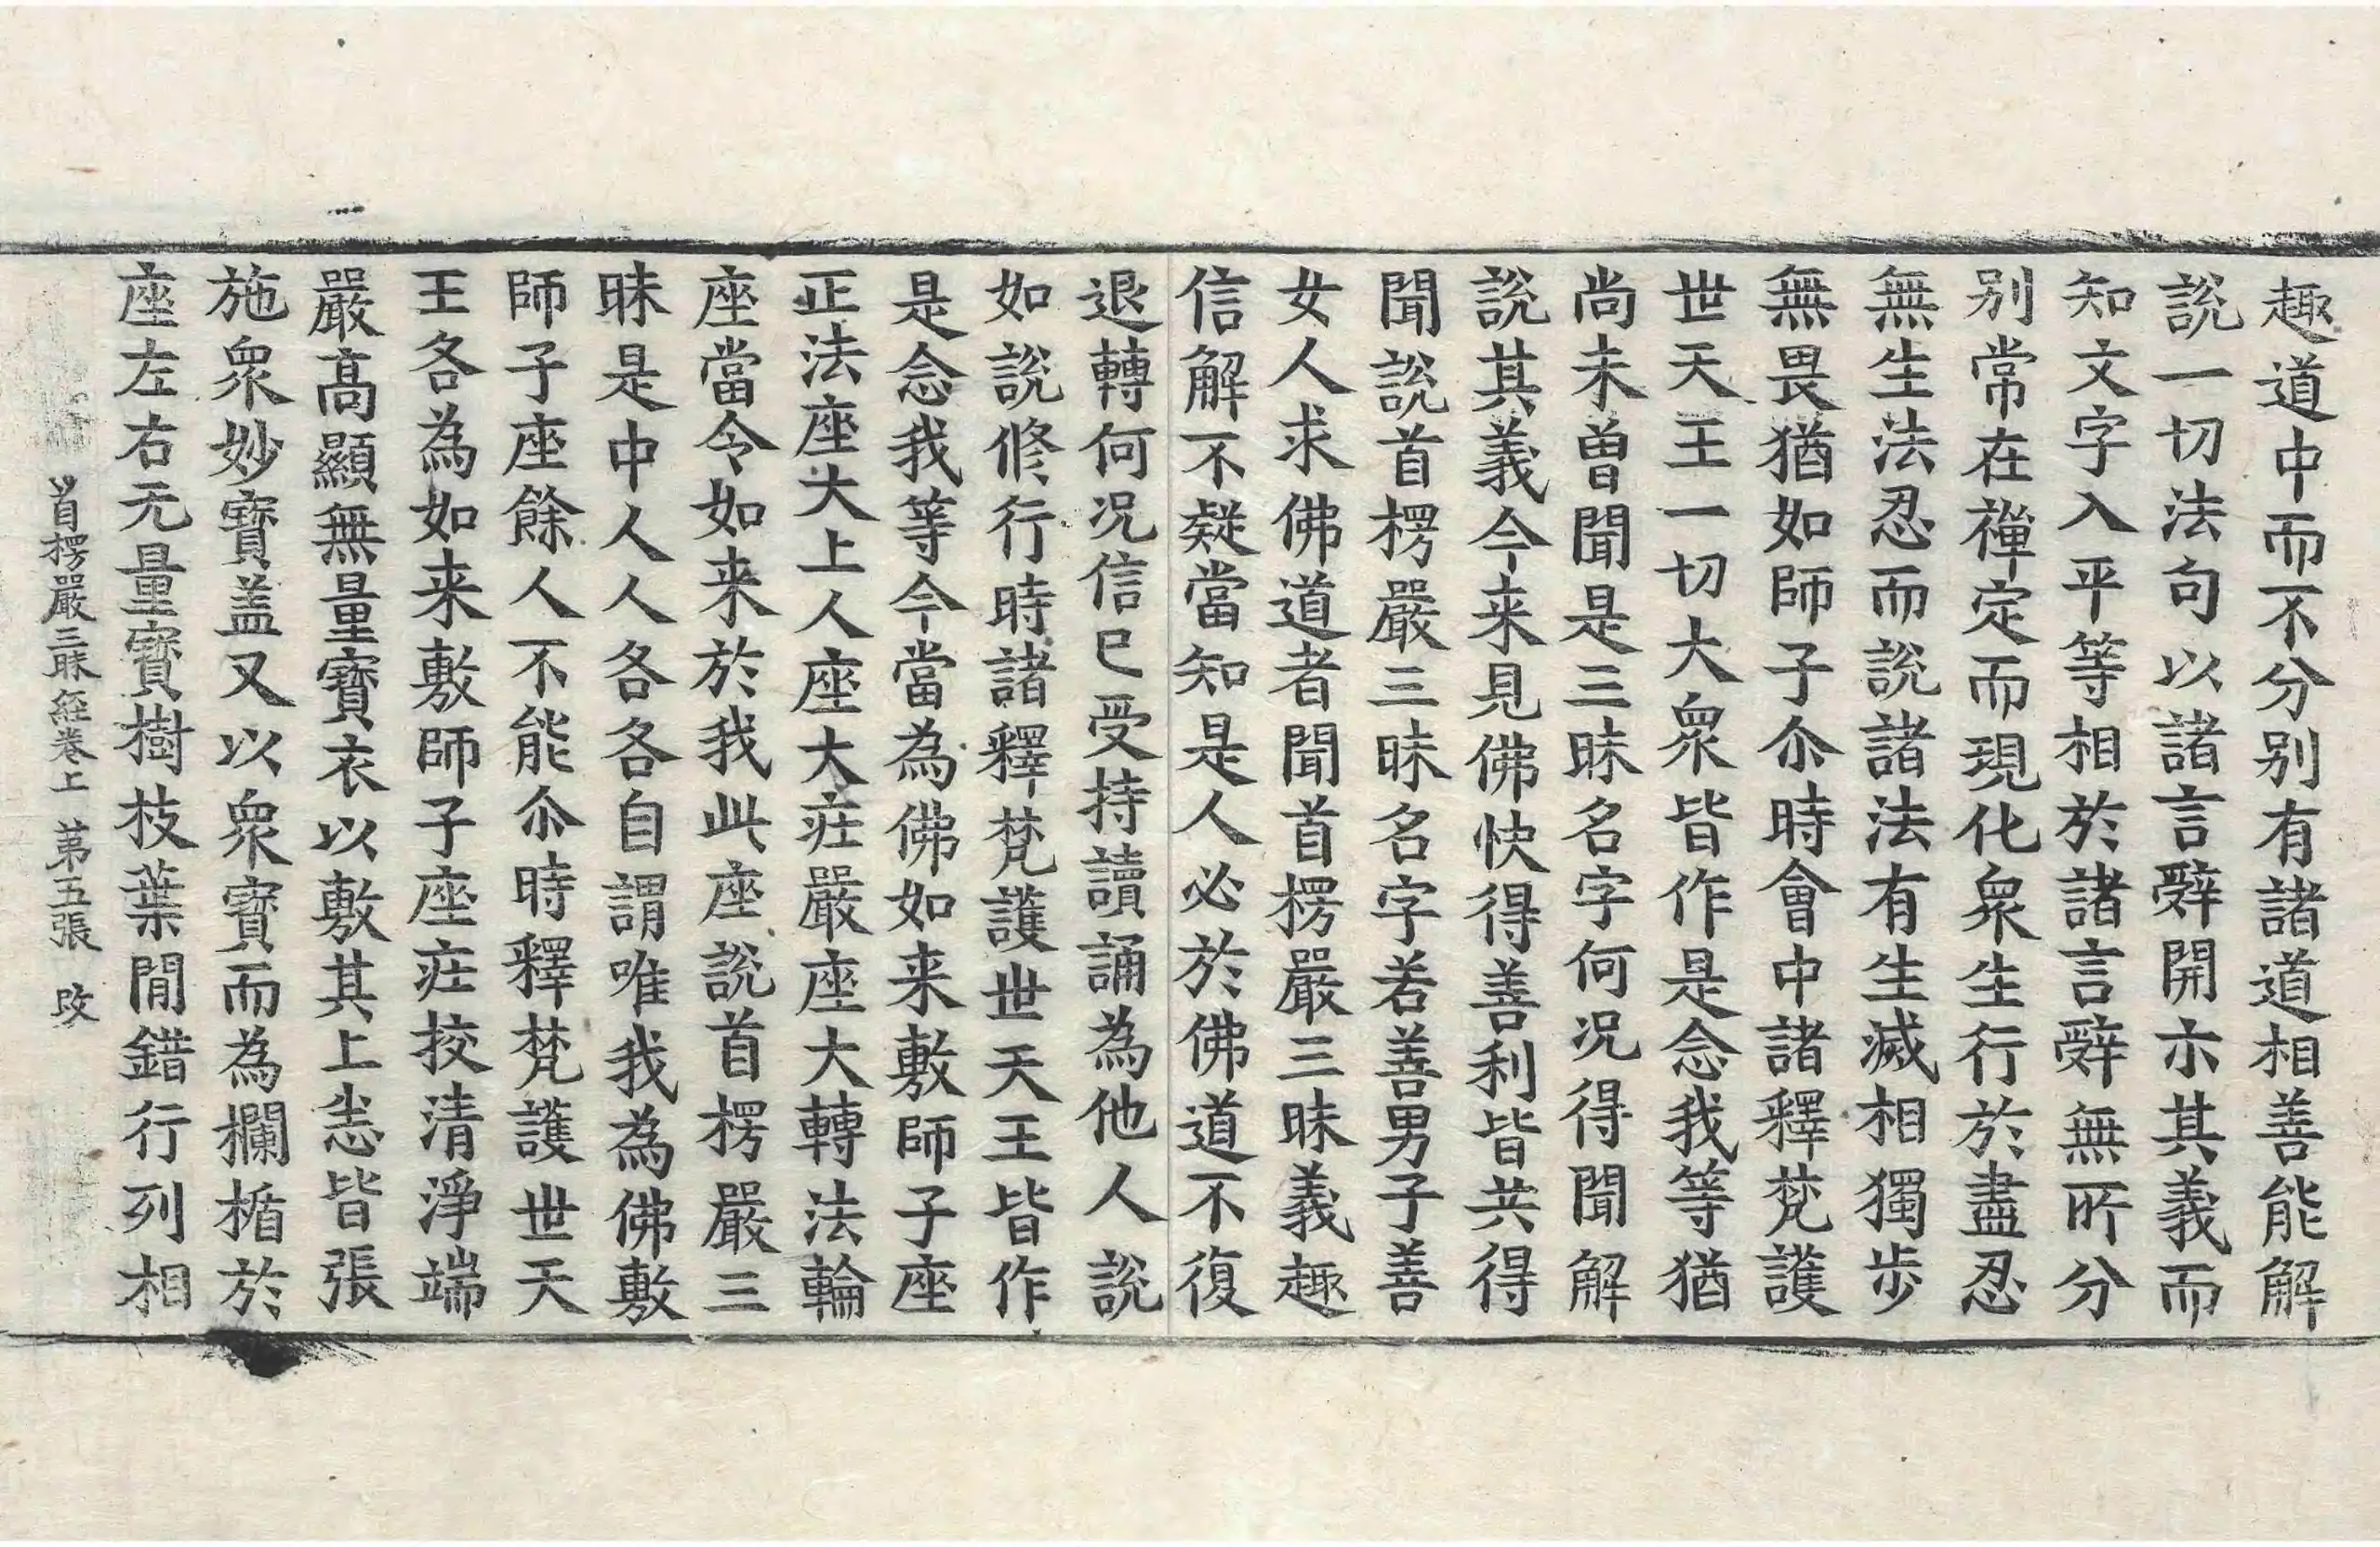 趣道中而不分别有諸道相善能解
説一切法句以諸言辭開示其義而
知文字入平等相於諸言辭無所分
别常在禪定而現化衆生行於盡忍
無生法忍而説諸法有生滅相獨歩
無畏猶如師子尒時會中諸釋梵護
世天王一切大衆皆作是念我等猶
尚未曽聞是三昧名字何况得聞解
説其義今来見佛快得善利皆共得
聞説首楞嚴三昧名字若善男子善
女人求佛道者聞首楞嚴三昧義趣
信解不疑當知是人必於佛道不復
退轉何况信已受持讀誦為他人説
如説修行時諸釋梵護世天王皆作
是念我等今當為佛如来敷師子座
正法座大上人座大庄嚴座大轉法輪
座當令如来於我此座説首楞嚴三
昧是中人人各各自謂唯我為佛敷
師子座餘人不能尒時釋梵護世天
王各為如来敷師子座庄挍清淨端
嚴髙顯無量寳衣以敷其上悉皆張
施衆妙寳盖又以衆寳而為欄楯於
座左右无量寳樹枝葉間錯行列相
首楞嚴三昧経卷上 苐五張 改